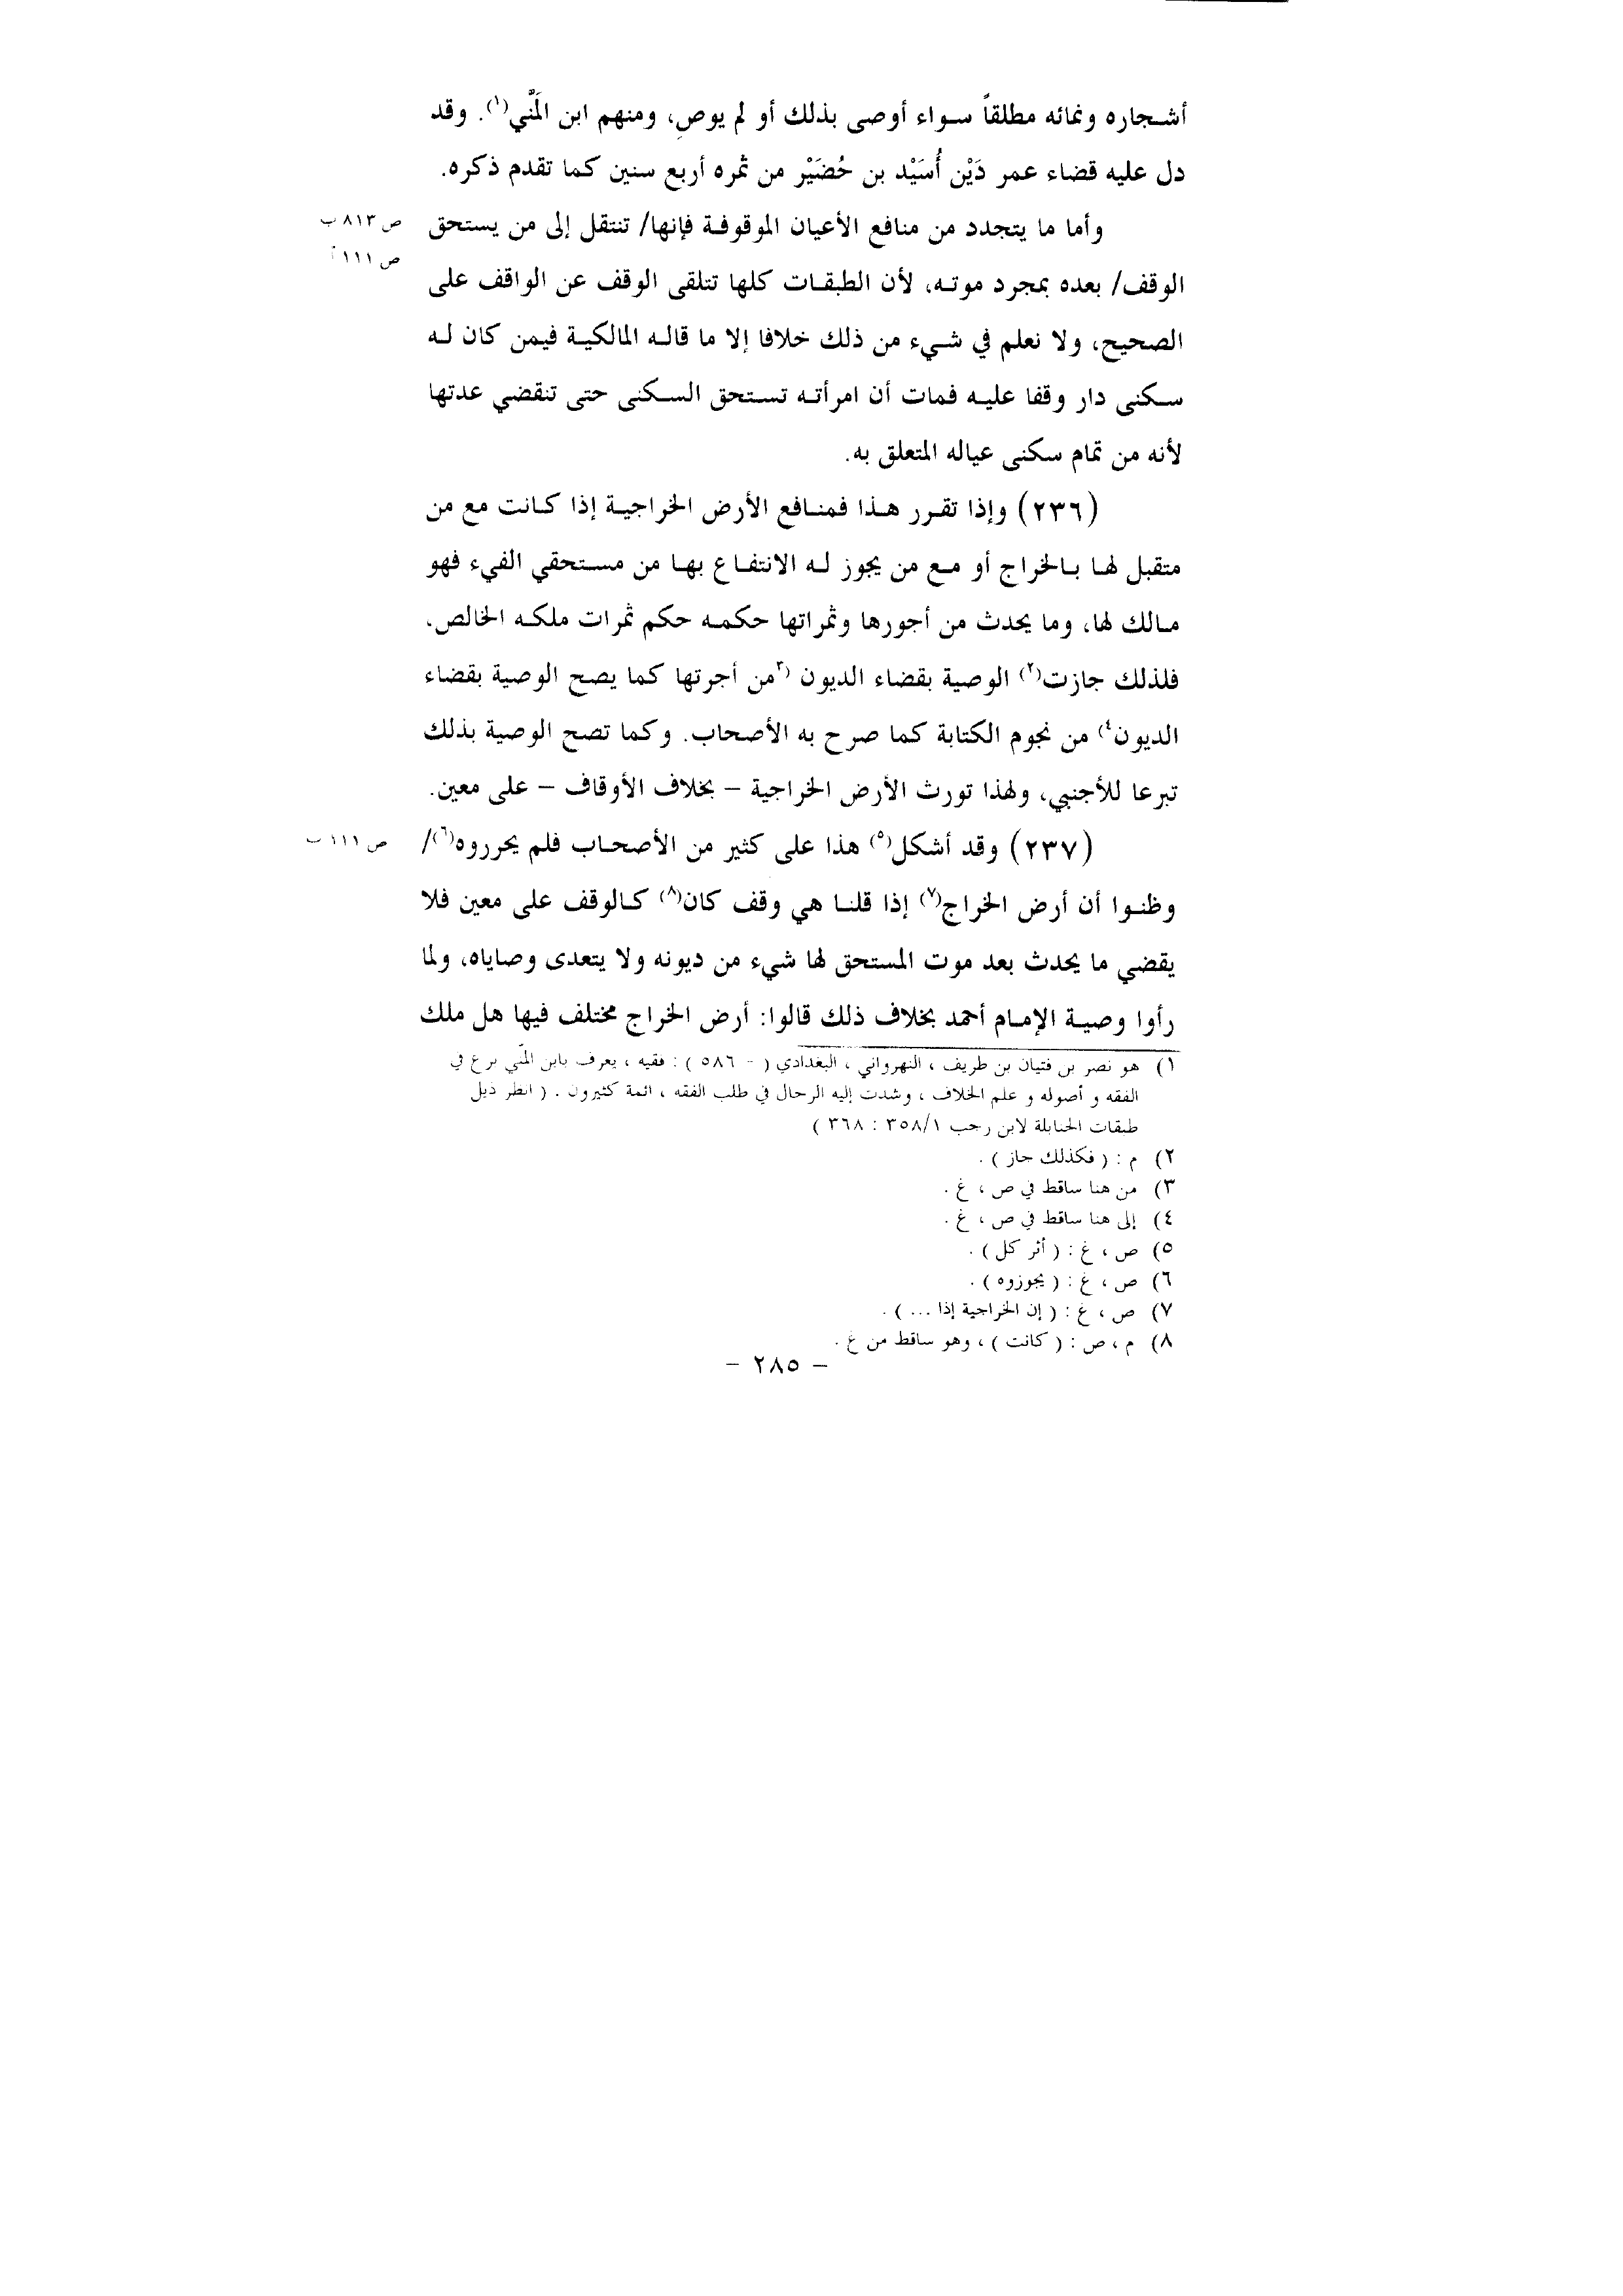 أشجاره ونمائه مطلقاً سواء أوصى بذلك أو لم يوصِ، ومنهم ابن المَنَّي(١). وقد
دل عليه قضاء عمر دَيْن أُسَيْد بن حُضَيْر من ثمره أربع سنين كما تقدم ذكره.
وأما ما يتجدد من منافع الأعيان الموقوفة فإنها/ تنتقل إلى من يستحق
ص ٨١٣ ب
الوقف/ بعده بمجرد موته، لأن الطبقات كلها تتلقى الوقف عن الواقف على
ص ١١١ أ
الصحيح، ولا نعلم في شيء من ذلك خلافا إلا ما قاله المالكية فيمن كان له
سكنى دار وقفا عليه فمات أن امرأته تستحق السكنى حتى تنقضي عدتها
لأنه من تمام سكنى عياله المتعلق به.
(٢٣٦) وإذا تقرر هذا فمنافع الأرض الخراجية إذا كانت مع من
متقبل لها بالخراج أو مع من يجوز له الانتفاع بها من مستحقي الفيء فهو
مالك لها، وما يحدث من أجورها وثمراتها حكمه حكم ثمرات ملكه الخالص،
فلذلك جازت(٢) الوصية بقضاء الديون (٣من أجرتها كما يصح الوصية بقضاء
الديون٤) من نجوم الكتابة كما صرح به الأصحاب. وكما تصح الوصية بذلك
تبرعا للأجنبي، ولهذا تورث الأرض الخراجية – بخلاف الأوقاف – على معين.
(٢٣٧) وقد أشكل(٥) هذا على كثير من الأصحاب فلم يحرروه(٦)/
ص ١١١ ب
وظنوا أن أرض الخراج(٧) إذا قلنا هي وقف كان(٨) كالوقف على معين فلا
يقضي ما يحدث بعد موت المستحق لها شيء من ديونه ولا يتعدى وصاياه، ولما
رأوا وصية الإمام أحمد بخلاف ذلك قالوا: أرض الخراج مختلف فيها هل ملك
١) هو نصر بن فتيان بن طريف ، النهرواني ، البغدادي ( - ٥٨٦ ) : فقيه ، يعرف بابن المنّي برع في
الفقه و أصوله و علم الخلاف ، وشدت إليه الرحال في طلب الفقه ، ائمة كثيرون . ( انظر ذيل
طبقات الحنابلة لابن رجب ٣٥٨/١ : ٣٦٨ )
٢) م : ( فكذلك جاز ) .
٣) من هنا ساقط في ص ، غ .
٤) إلى هنا ساقط في ص ، غ .
٥) ص ، غ : ( أثر كل ) .
٦) ص ، غ : ( يجوزوه ) .
٧) ص ، غ : ( إن الخراجية إذا ... ) .
٨) م ، ص : ( كانت ) ، وهو ساقط من غ .
– ٢٨٥ –